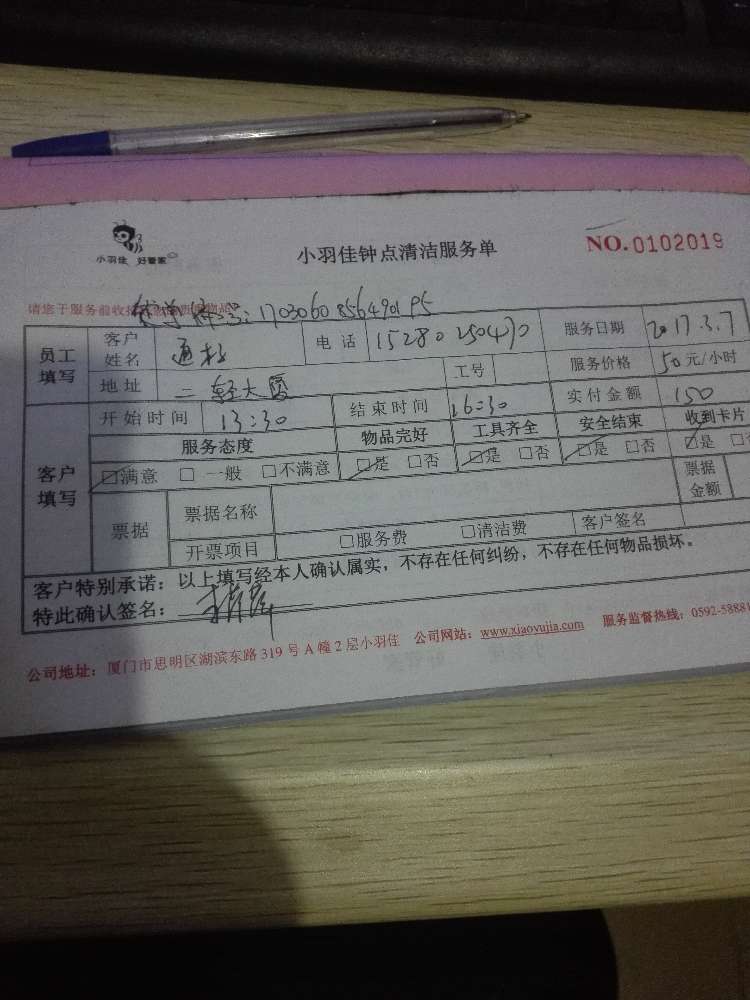 小羽佳 好管家
小羽佳钟点清洁服务单
NO.0102019
请您于服务前收拾
物品
1703060856490195
员工填写 客户姓名 电话 15280250470 服务日期 2017.3.7
地址 二轻大厦 工号 服务价格 50元/小时
客户填写 开始时间 13:30 结束时间 16:30 实付金额 150
服务态度 物品完好 工具齐全 安全结束 收到卡片
☑满意 □一般 □不满意 ☑是 □否 ☑是 □否 ☑是 □否 ☑是 □
票据 票据名称 票据金额
开票项目 □服务费 □清洁费 客户签名
客户特别承诺：以上填写经本人确认属实，不存在任何纠纷，不存在任何物品损坏。
特此确认签名：
公司地址：厦门市思明区湖滨东路319号A幢2层小羽佳 公司网站：www.xiaoyujia.com 服务监督热线：0592-58881